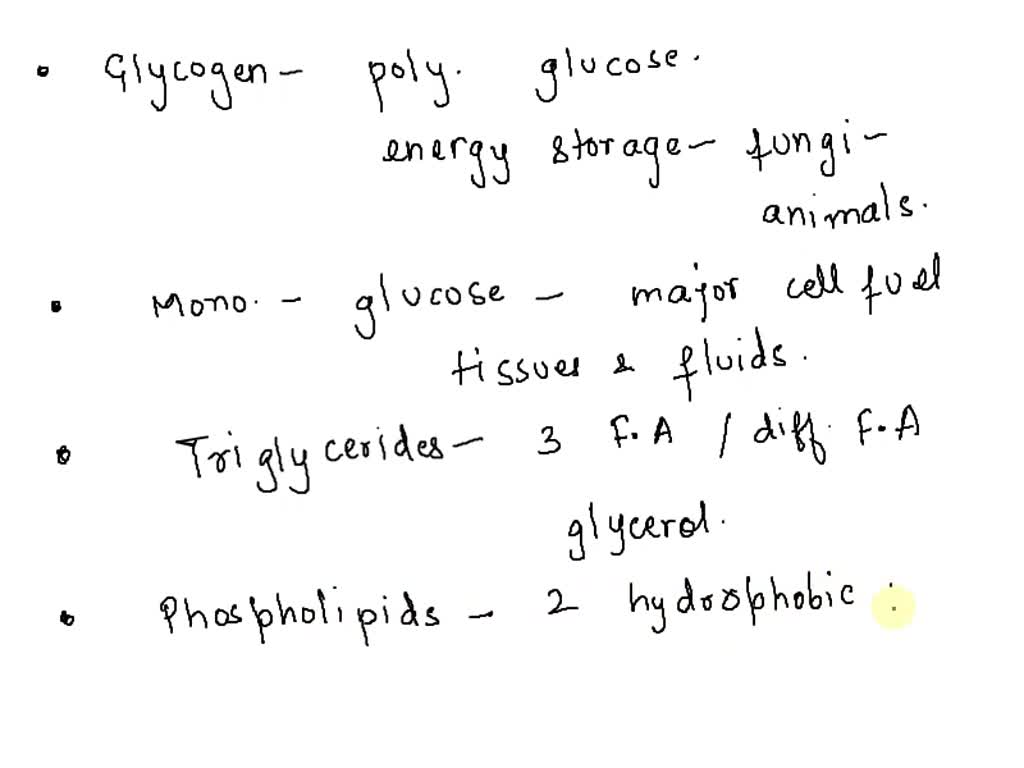 • Glycogen – poly. glucose.
energy storage – fungi –
animals.
• Mono. – glucose – major cell fuel
tissues & fluids.
• Triglycerides – 3 F.A / diff. F.A
glycerol.
• Phospholipids – 2 hydrophobic